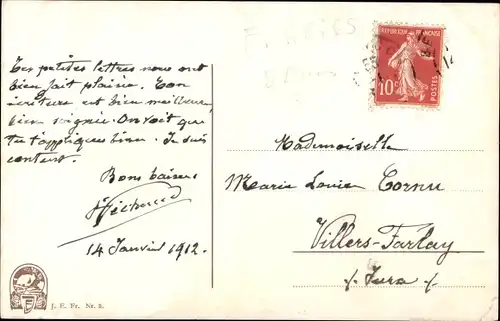 Tes petites lettres nous ont
bien fait plaisir. Ton
écriture est bien meilleure,
bien soignée. On voit que
tu t'appliques bien. Je suis
content.
Bons baisers
14 Janvier 1912.
J. E. Fr. Nr. 8.
REPUBLIQUE FRANÇAISE
10c
POSTES
Mademoiselle
Marie Louise Cornu
Villers-Farlay
Jura